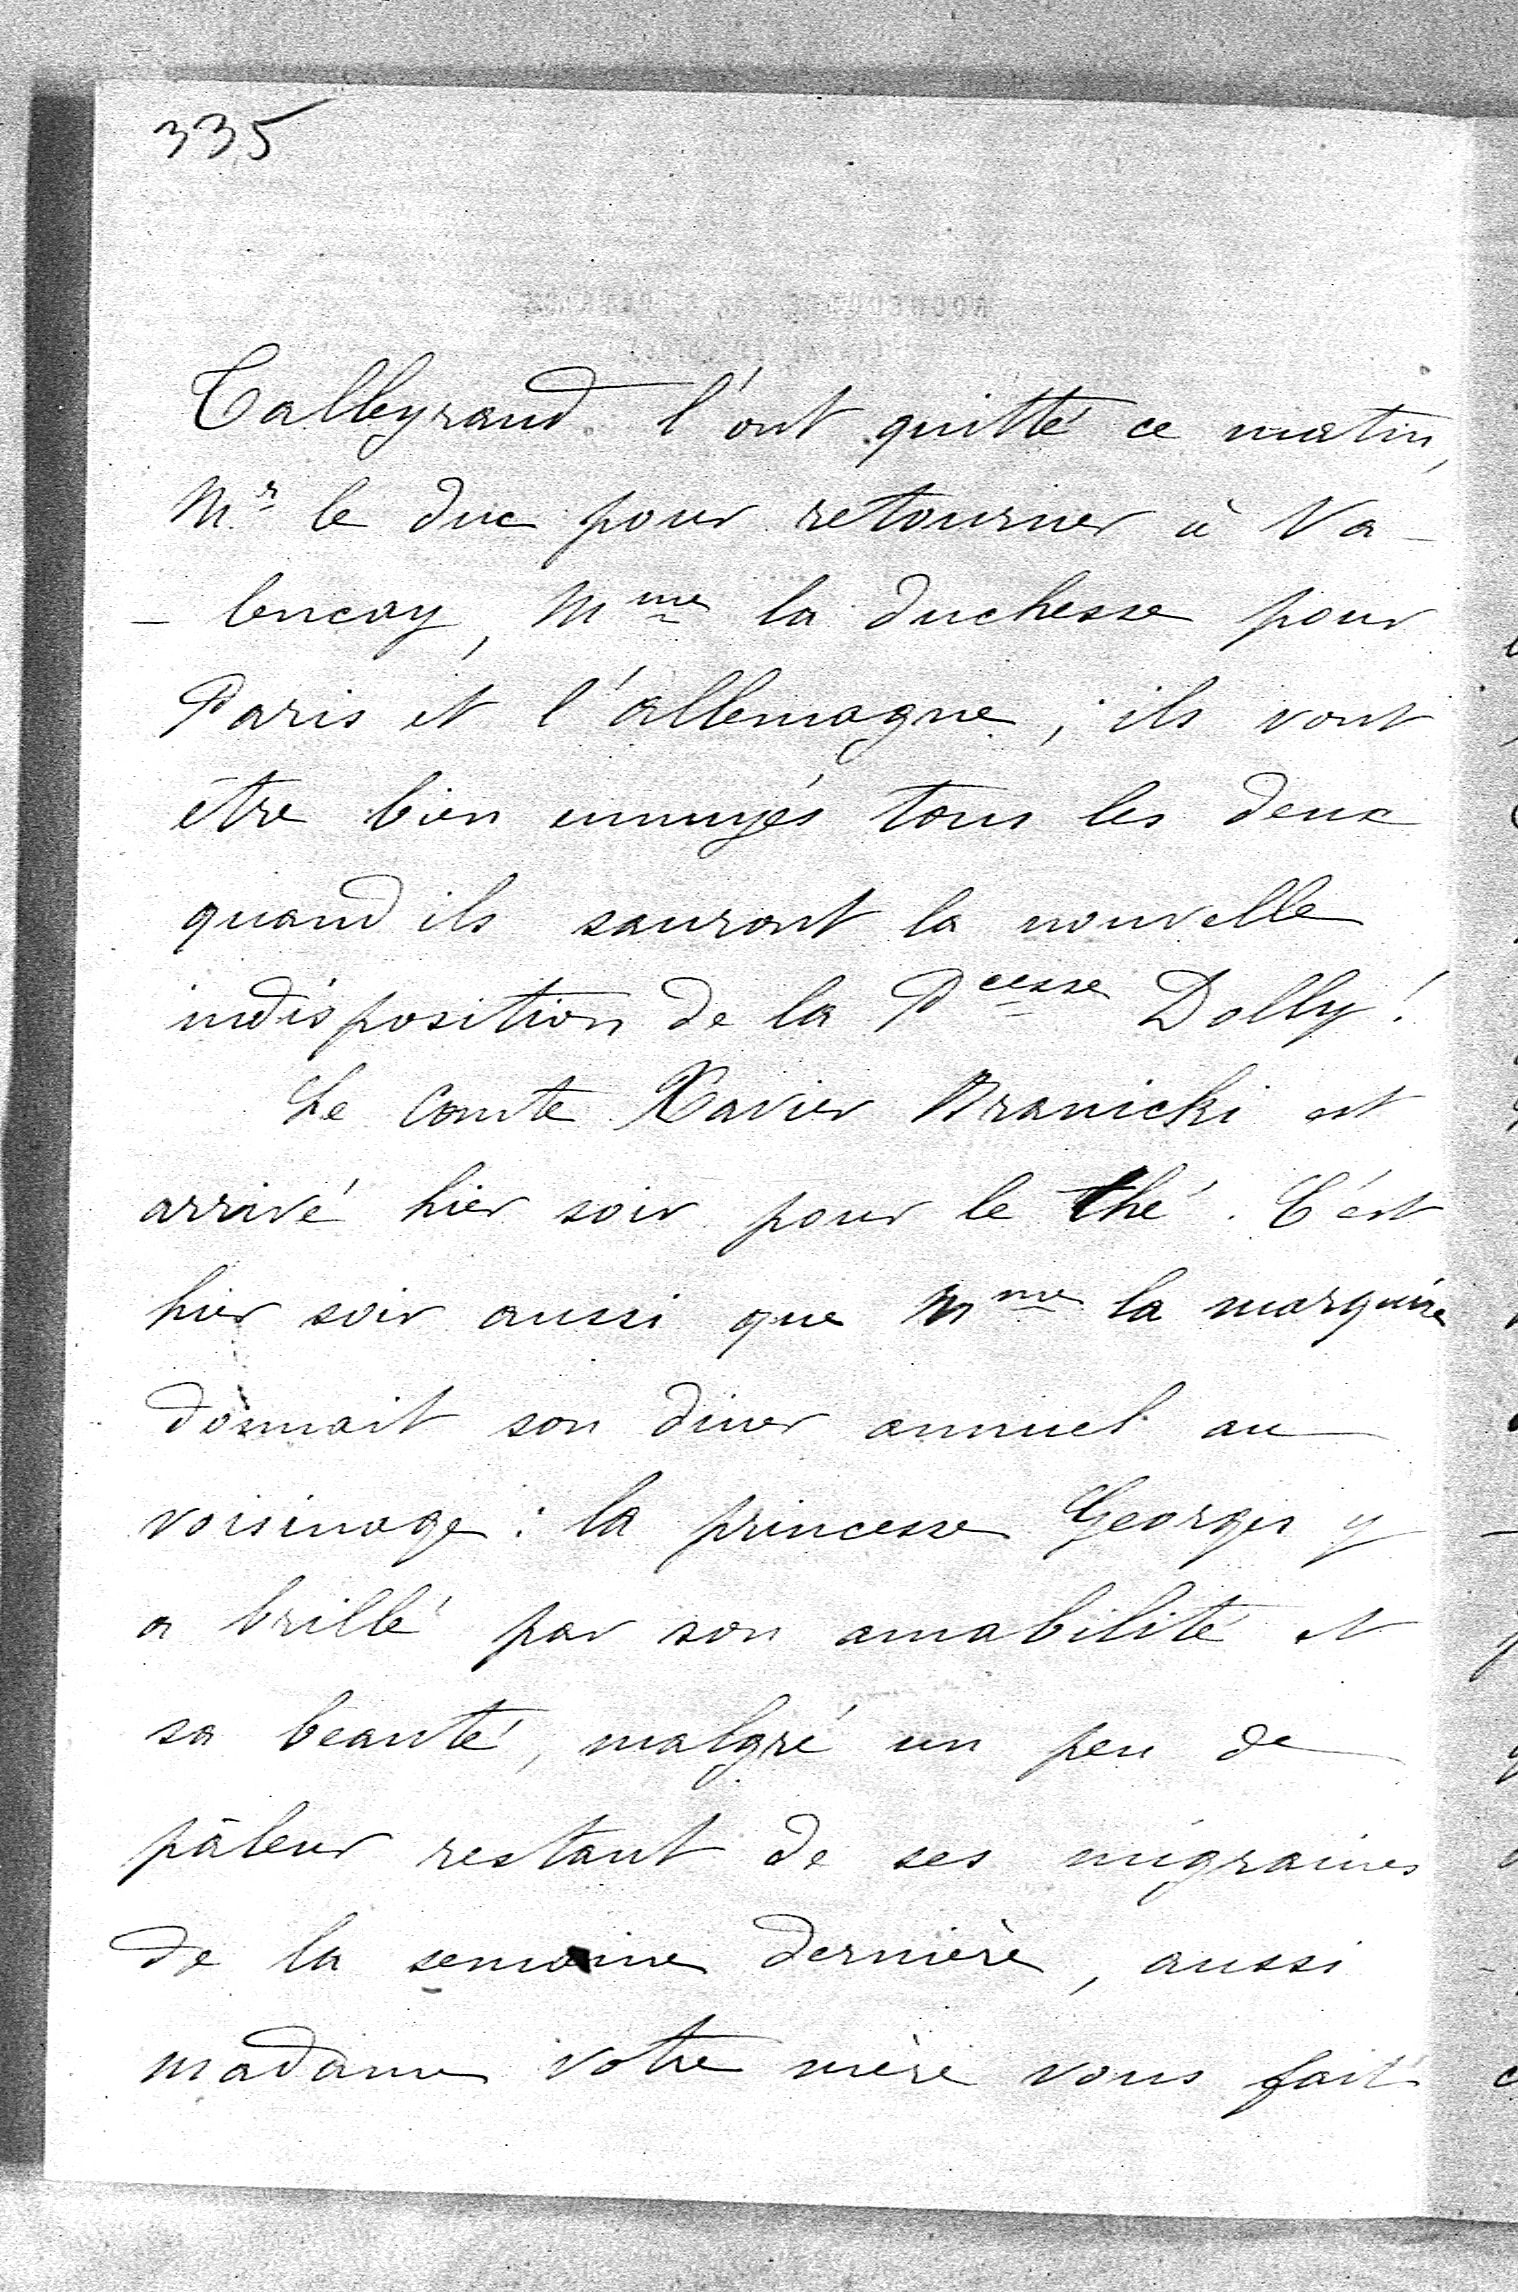 335
Talleyrand l'ont quitté ce matin,
Mr le duc pour retourner à Va-
-lencay, Mme la duchesse pour
Paris et l'allemagne ; ils vont
être bien ennuyés tous les deux
quand ils sauront la nouvelle
indisposition de la Pcesse Dolly !
Le comte Xavier Branicki est
arrivé hier soir pour le thé. C'est
hier soir aussi que Mme la marquise
donnait son diner annuel au
voisinage : la princesse Georges y
a brillé par son amabilité et
sa beauté, malgré un peu de
pâleur restant de ses migraines
de la semaine dernière, aussi
madame votre mère vous fait